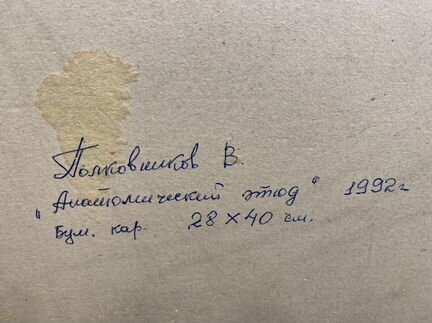 Полковников В.
"Анатомический этюд" 1992г
Бум. кар. 28×40 см.